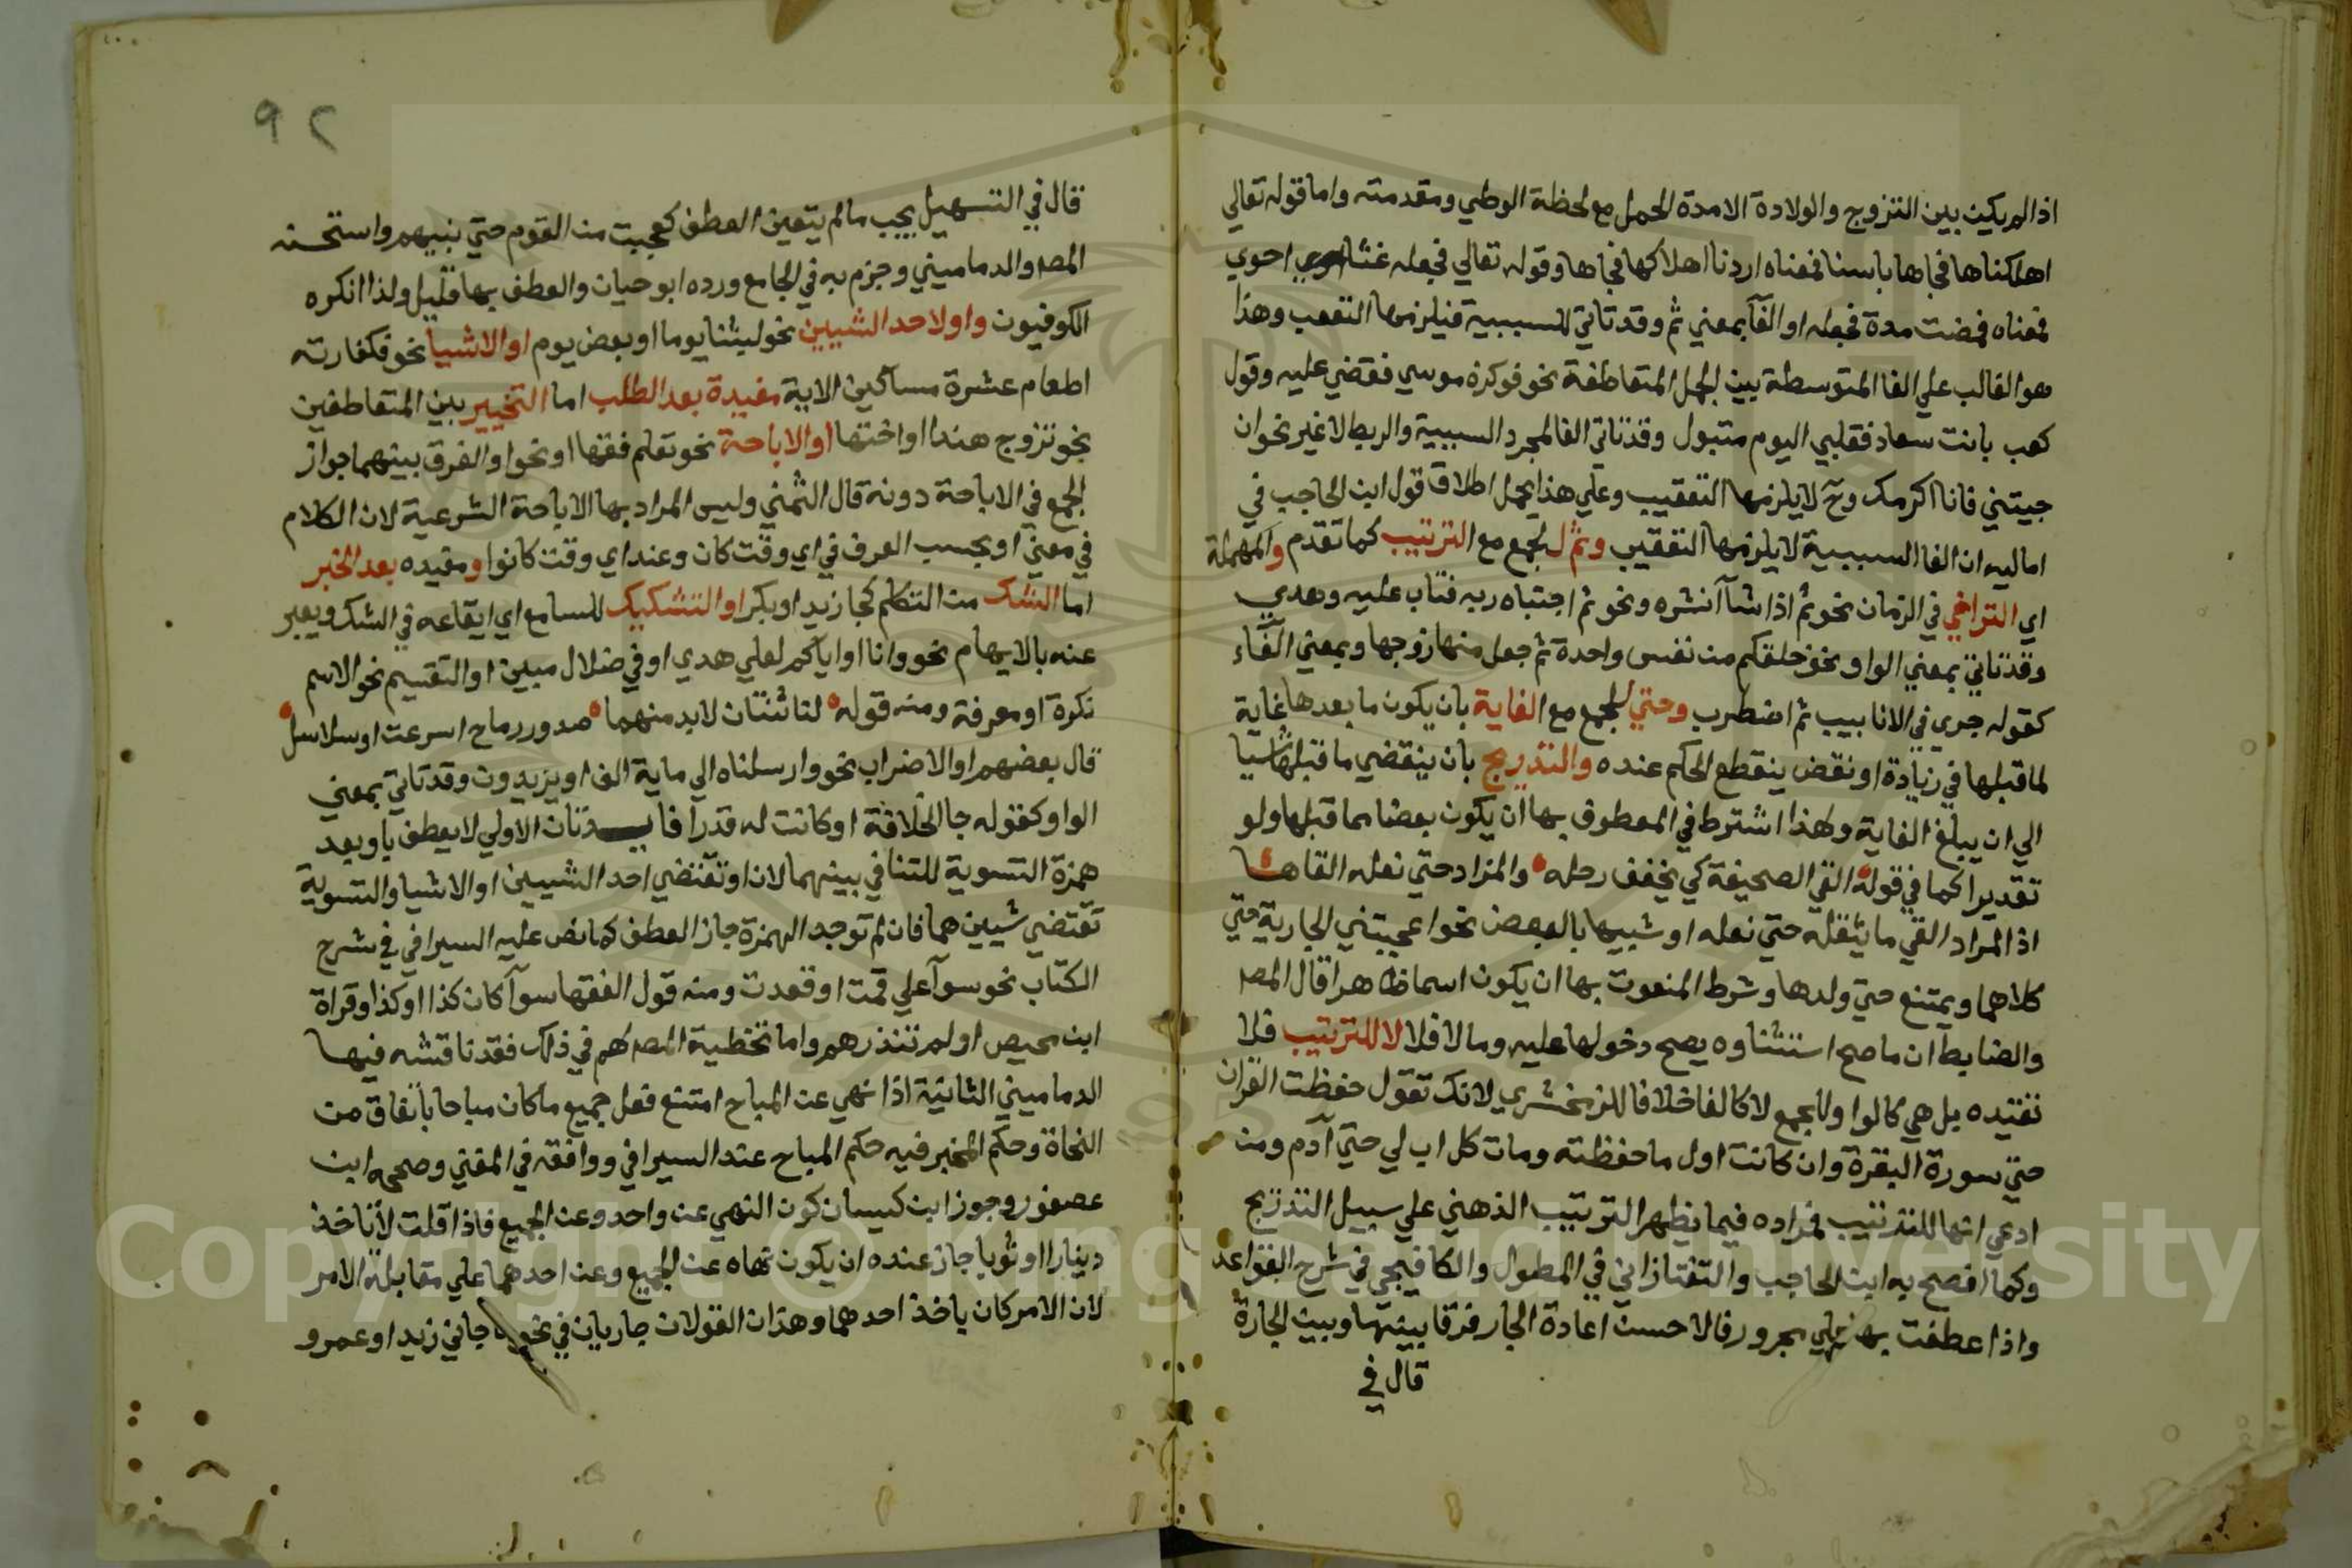 اذا لم يكن بين التزوج والولادة الا مدة الحمل مع لحظة الوطي ومقدمته واما قوله تعالي
اهلكناها فجاها باسنا فمعناه اردنا اهلاكها فجاها وقوله تعالي فجعله غثا احوي
فمعناه فمضت مدة فجعله او الفآ بمعني ثم وقد تاتي للسببية فيلزمها التعقب وهذا
هو الغالب علي الفا المتوسطة بين الجمل المتعاطفة نحو فوكزه موسي فقضي عليه وقول
كعب بانت سعاد فقلبي اليوم متبول وقد تاتي الفا لمجرد السببية والربط لا غير نحو ان
جيتني فانا اكرمك وح لا يلزمها التعقيب وعلي هذا يحمل اطلاق قول ابن الحاجب في
اماليه ان الفا السببية لا يلزمها التعقيب وثم لجمع مع الترتيب كما تقدم والمهملة
اي التراخي في الزمان نحو ثم اذا شآ انشره ونحو ثم اجتباه ربه فتاب عليه وهدي
وقد تاتي بمعني الواو نحو خلقكم من نفس واحدة ثم جعل منها زوجها وبمعني الفآء
كقوله جري في الانابيب ثم اضطرب وحتي لجمع مع الغاية بان يكون ما بعدها غاية
لما قبلها في زيادة او نقص ينقطع الحكم عنده والتدريج بان ينقضي ما قبلها شيا
الي ان يبلغ الغاية ولهذا اشترط في المعطوف بها ان يكون بعضا مما قبلها ولو
تقديرا كما في قوله القي الصحيفة كي يخفف رحله والزاد حتي نعله القاها
اذ المراد القي ما يثقله حتي نعله او شبيها بالبعض نحو اعجبتني الجارية حتي
كلامها ويمتنع حتي ولدها وشرط المنعوت بها ان يكون اسما ظاهرا قال المص
والضابط ان ما صح استثناوه يصح دخولها عليه وما لا فلا لا للترتيب فلا
تفيده بل هي كالواو لجمع لا كالفا خلافا للزمخشري لانك تقول حفظت القران
حتي سورة البقرة وان كانت اول ما حفظته ومات كل اب لي حتي آدم ومن
ادعي انها للترتيب فمراده فيما يظهر الترتيب الذهني علي سبيل التدريج
وكما افصح به ابن الحاجب والتفتازاني في المطول والكافيجي في شرح القواعد
واذا عطفت بها علي مجرور فالاحسن اعادة الجار فرقا بينها وبين الجارة
قال في
٩٢
قال في التسهيل يجب مالم يتعين العطف كعجبت من القوم حتي بنيهم واستحسنه
المص والدماميني وجزم به في الجامع ورده ابو حيان والعطف بها قليل ولذا انكره
الكوفيون واو لاحد الشيين نحو لبثنا يوما او بعض يوم او الاشيا نحو فكفارته
اطعام عشرة مساكين الاية مفيدة بعد الطلب اما التخيير بين المتعاطفين
نحو تزوج هندا او اختها او الاباحة نحو تعلم فقها او نحوا والفرق بينهما جواز
الجمع في الاباحة دونه قال الشمني وليس المراد بها الاباحة الشرعية لان الكلام
في معني او بحسب العرف في اي وقت كان وعند اي وقت كانوا ومفيده بعد الخبر
اما الشك من المتكلم كجا زيد او بكر او التشكيك للسامع اي ايقاعه في الشك ويعبر
عنه بالايهام نحو وانا او اياكم لعلي هدي او في ضلال مبين او التقسيم نحو الاسم
نكرة او معرفة ومنه قوله لنا ثنتان لابد منهما صدور رماح اسرعت او سلاسل
قال بعضهم او الاضراب نحو وارسلناه الي ماية الف او يزيدون وقد تاتي بمعني
الواو كقوله جا الخلافة او كانت له قدرا فايدتان الاولي لا يعطف باو بعد
همزة التسوية للتنافي بينهما لان او تقتضي احد الشيين او الاشيا والتسوية
تقتضي شيين هما فان لم توجد الهمزة جاز العطف كما نص عليه السيرافي في شرح
الكتاب نحو سوآ علي قمت او قعدت ومنه قول الفقها سوآ كان كذا او كذا وقراة
ابن محيصن او لم تنذرهم واما تخطية المص لهم في ذلك فقد ناقشه فيها
الدماميني الثانية اذا نهي عن المباح امتنع فعل جميع ما كان مباحا باتفاق من
النحاة وحكم المخير فيه حكم المباح عند السيرافي ووافقه في المغني وصححه ابن
عصفور وجوز ابن كيسان كون النهي عن واحد وعن الجميع فاذا قلت لا تاخذ
دينارا او ثوبا جاز عنده ان يكون نهاه عن الجميع وعن احدهما علي مقابلة الامر
لان الامر كان ياخذ احدهما وهذان القولان جاريان في نحو جاني زيد او عمرو
Copyright © King Saud University